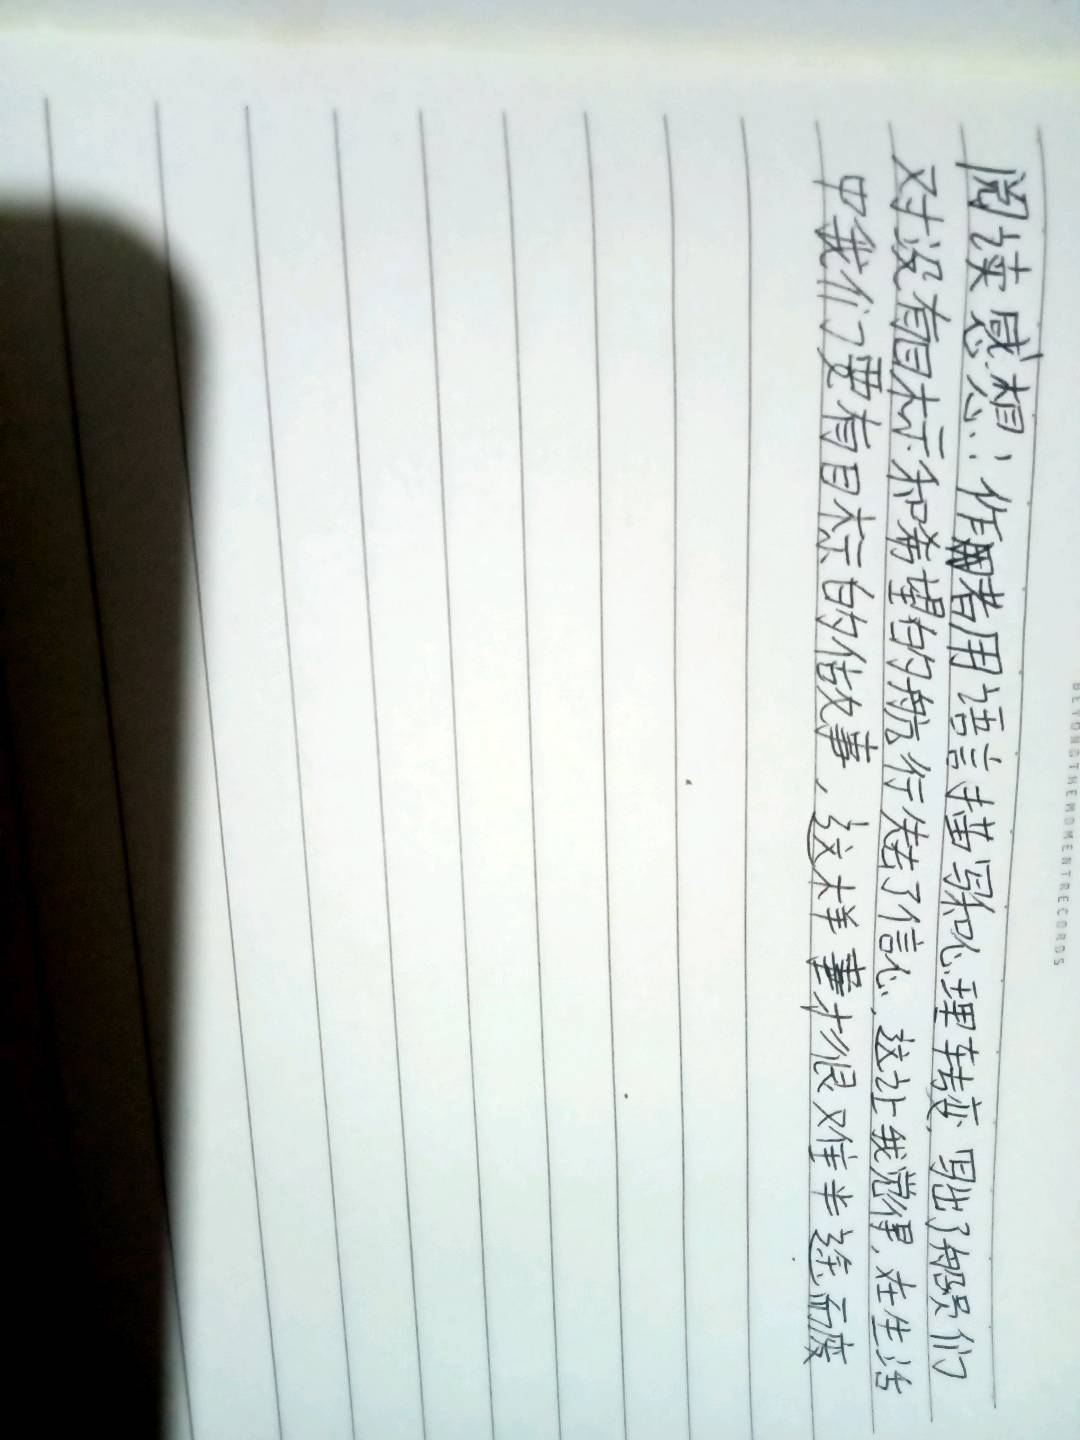 BEYONDTHEMOMENTRECORDS
阅读感想：作者用语言描写和心理转变，写出了船员们
对没有目标和希望的航行失去了信心，这让我觉得，在生活
中我们要有目标的做事，这样才很难半途而废